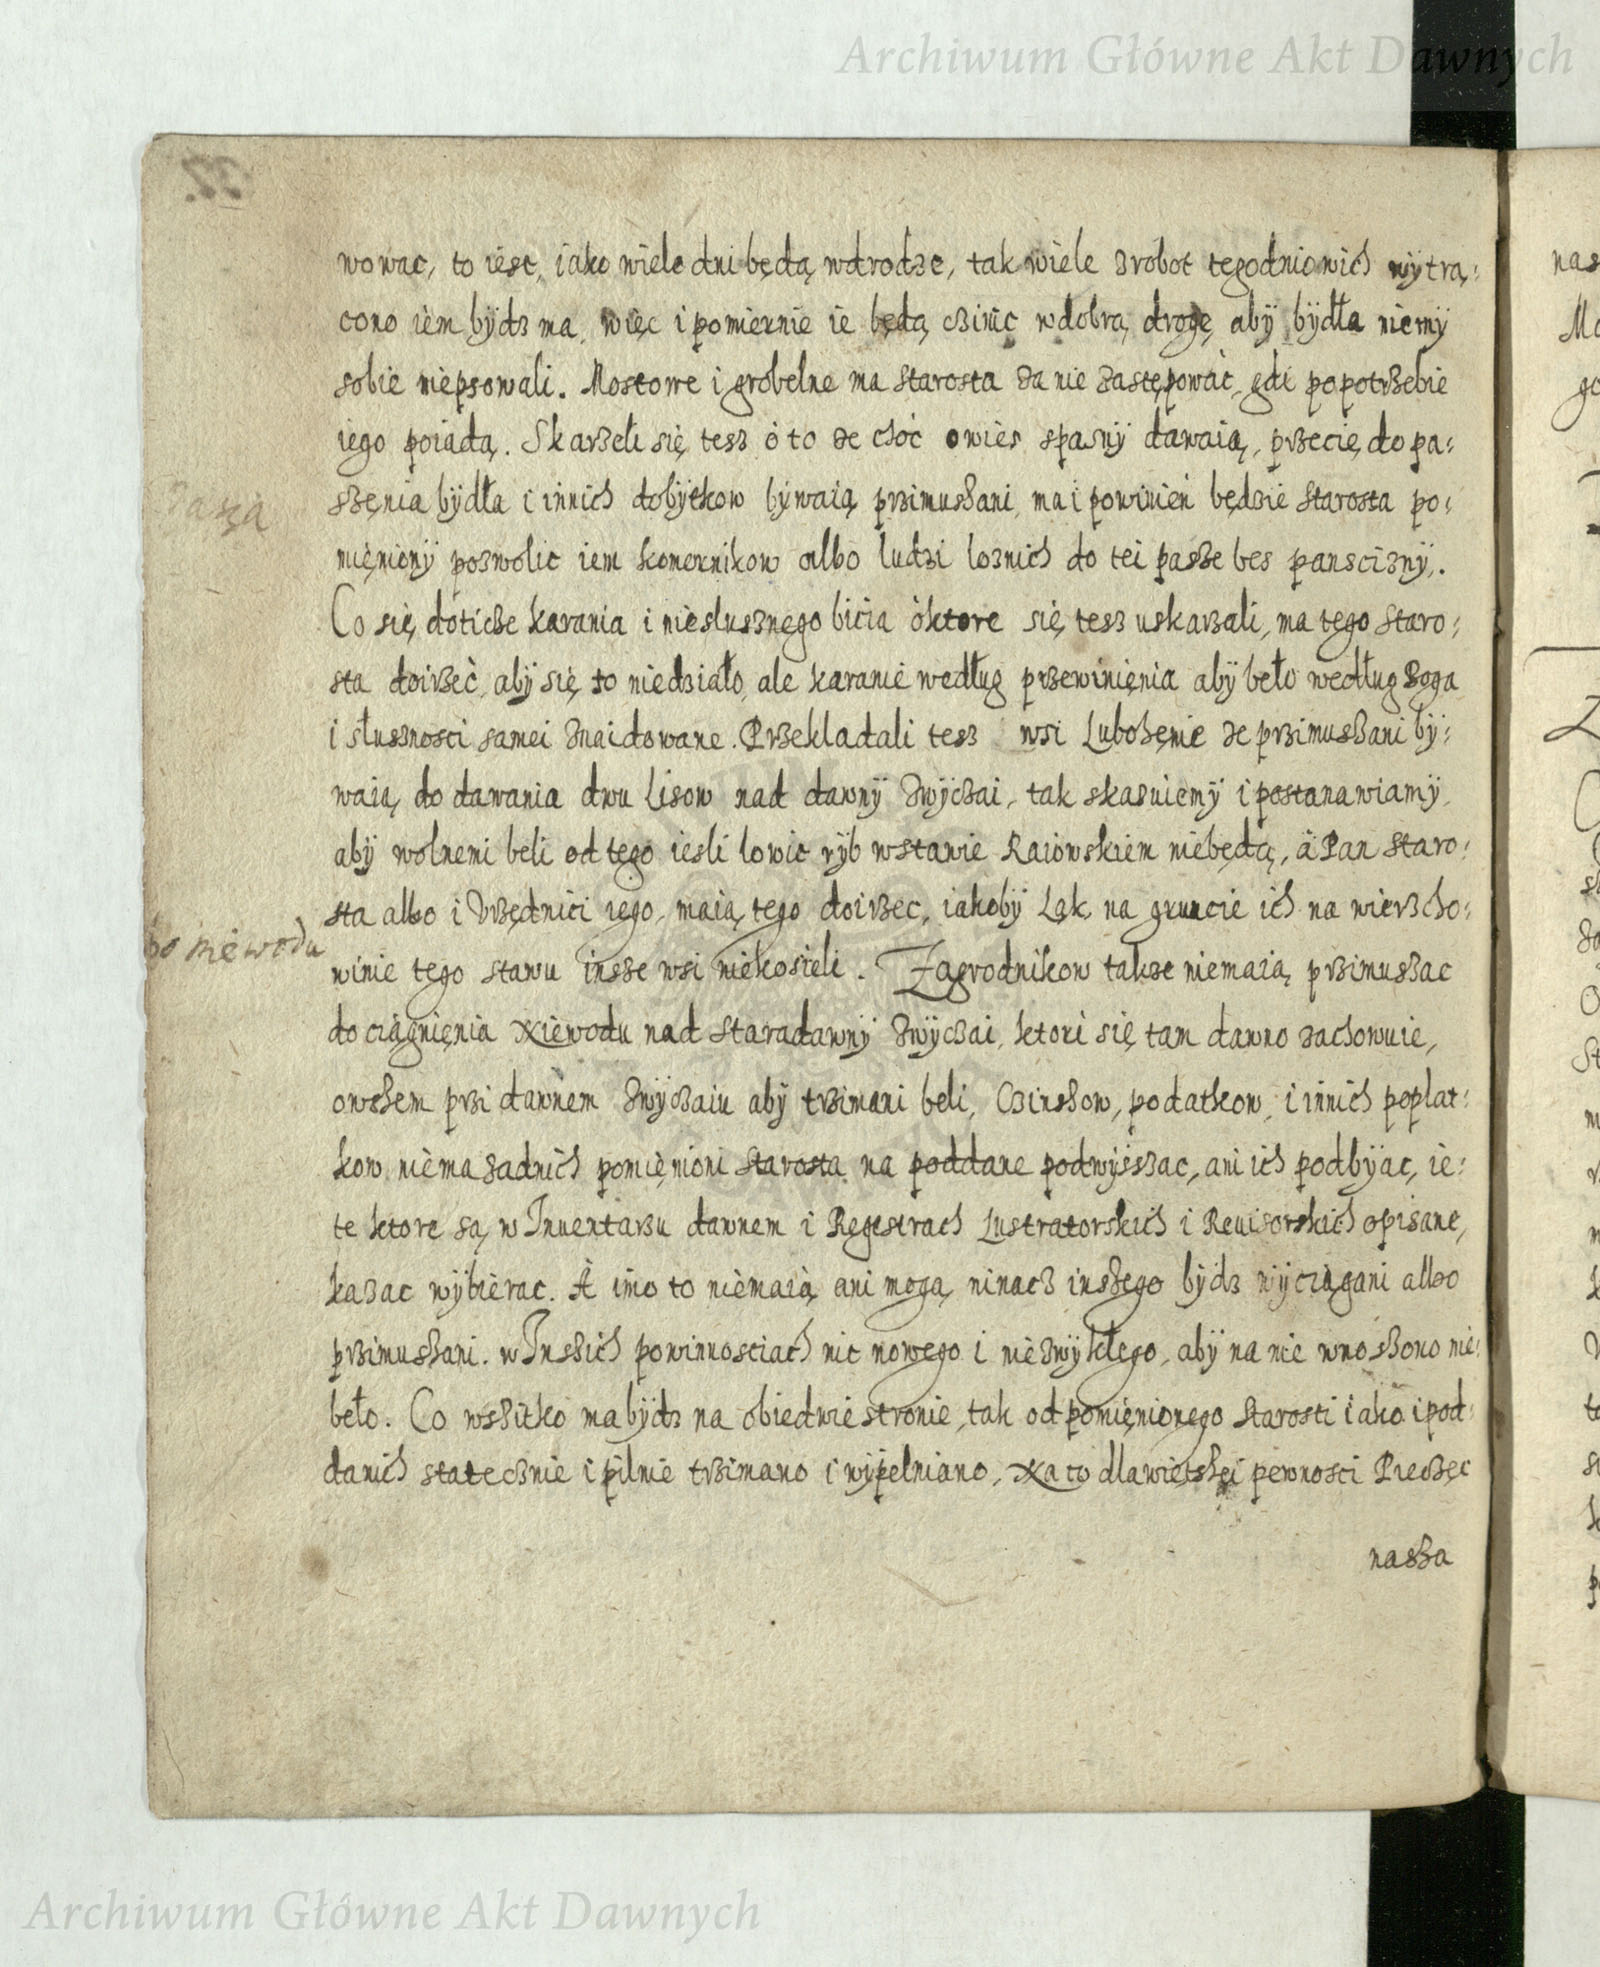 Archiwum Główne Akt Dawnych
wowac, to iest, iako wiele dni będą wdrodze, tak wiele zrobot tegodniowich wÿtrą:
cono iem bÿdz ma, więc i pomiernie ie będą czinic wdobrą drogę abÿ bÿdła niemÿ
sobie niepsowali. Mostowe i grobelne ma Starosta za nie zastępowac, gdi popotrzebie
iego poiadą. Skarzeli się tesz o to ze choc owies spasnÿ dawaią, przecię do pa:
szęnia bÿdła i innich dobÿtkow bÿwaią przimuszani, ma i powinien będzie Starosta po:
mięnionÿ pozwolic iem komornikow albo ludzi loznich do tei pasze bes pansciznÿ.
Pasza
Co się doticze karania i nieslusznego bicia o ktore się tesz uskarzali, ma tego Staro:
sta doirzec, abÿ się to niedziało, ale karanie według przewinięnia abÿ beło według Boga
i słusznosci samei znaidowane. Przekladali tesz wsi Lubochęnie ze przimuszani bÿ:
waią do dawania dwu Lisow nad dawnÿ zwÿczai, tak skazuiemÿ i postanawiamÿ,
abÿ wolnemi beli od tego iesli lowic rÿb wstawie Raiowskiem niebędą, a Pan Staro:
sta albo i Vrzędnici iego, maią tego doirzec, iakobÿ Ląk na gruncie ich na wierzcho:
winie tego stawu insze wsi niekosieli. Zagrodnikow takze niemaią przimuszac
do niewodu
do ciągnięnia Niewodu nad Staradawnÿ zwÿczai, ktori się tam dawno zachowuie,
owszem przi dawnem zwÿczaiu abÿ trzimani beli, Czinszow, podatkow, i innich poplat:
kow niema zadnich pomięnioni Starosta na poddane podwÿszszac, ani ich podbÿac, ie:
te ktore są w Inuentarzu dawnem i Regestrach Lustratorskich i Reuisorskich opisane,
kazac wÿbierac. A imo to niemaią ani mogą ninacz inszego bÿdz wÿciągani albo
przimuszani. w Inszich powinnosciach nic nowego i niezwÿkłego, abÿ na nie wnoszono nie:
beło. Co wszitko ma bÿdz na obiedwie stronie, tak od pomięnionego Starosti iako i pod:
danich statecznie i pilnie trzimano i wÿpelniano. Na co dla większei pewnosci Pieczęc
nasza
Archiwum Główne Akt Dawnych